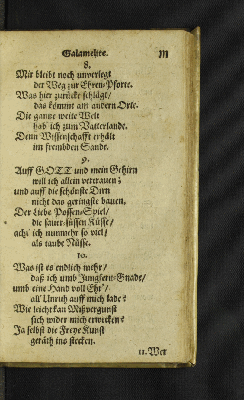 Galamelite.
8.
Mir bleibt noch unverlegt
der Weg zur Ehren-Pforte.
Was hier zurücke schlägt/
das kömmt am andern Orte.
Die gantze weite Welt
hab' ich zum Vatterlande.
Denn Wissenschafft erhält
im frembden Sande.
9.
Auff GOTT und mein Gehirn
will ich allein vertrauen;
und auff die schönste Dirn
nicht das geringste bauen.
Der Liebe Possen-Spiel/
die sauer-süssen Küsse/
acht' ich nunmehr so viel/
als taube Nüsse.
10.
Was ist es endlich mehr/
daß ich umb Jungfern-Gnade/
umb eine Hand voll Ehr'/
all' Unruh auff mich lade?
Wie leicht kan Mißvergunst
sich wider mich erwecken?
Ja selbst die Freye Kunst
geräth ins stecken.
11. Wer